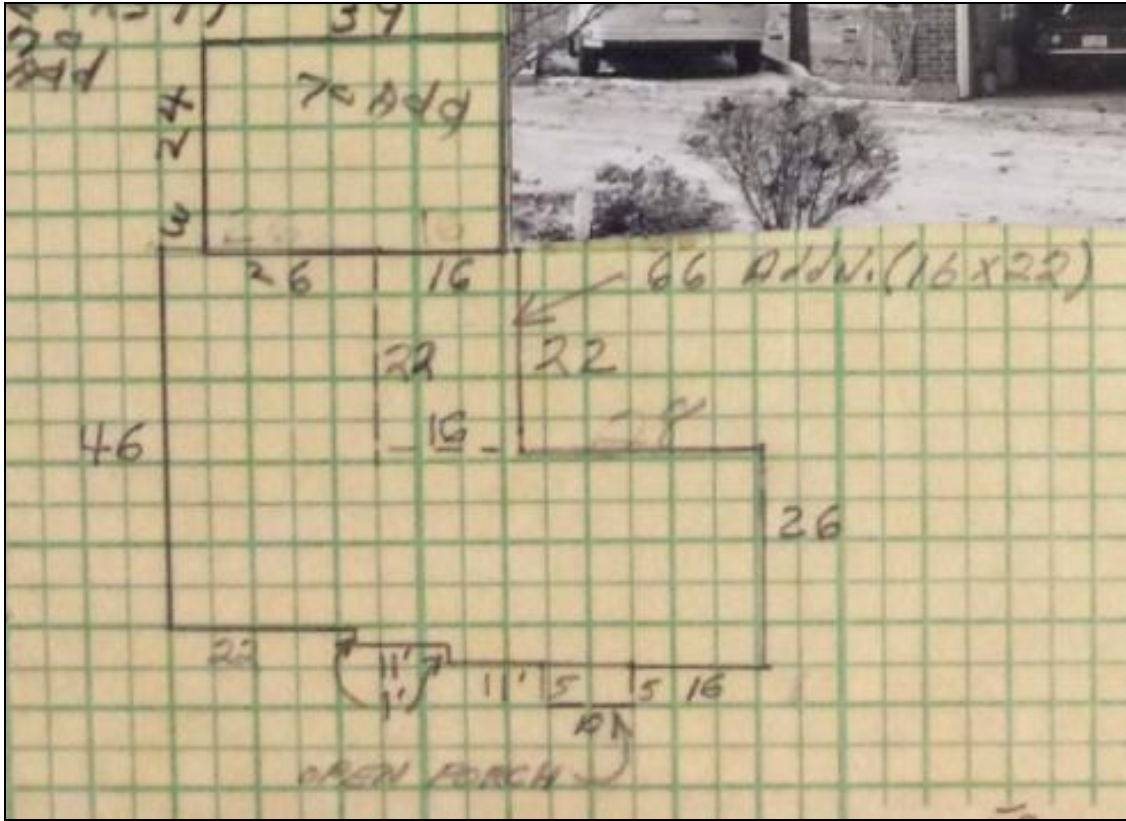 39
Add
70 Add
24
3
26 16
26 16
66 Addn. (16x22)
22 22
16
28
46
26
22
11' 7
1'
11' 5 5 16
OPEN PORCH